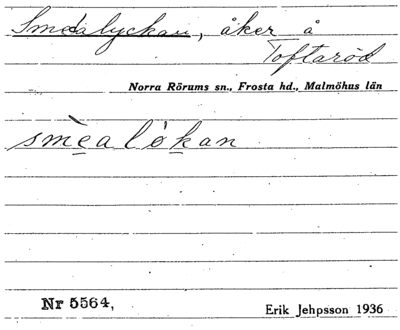 Smedalyckan, åker å
Toftaröd
Norra Rörums sn., Frosta hd., Malmöhus län
smèalókan
Nr 5564,
Erik Jehpsson 1936